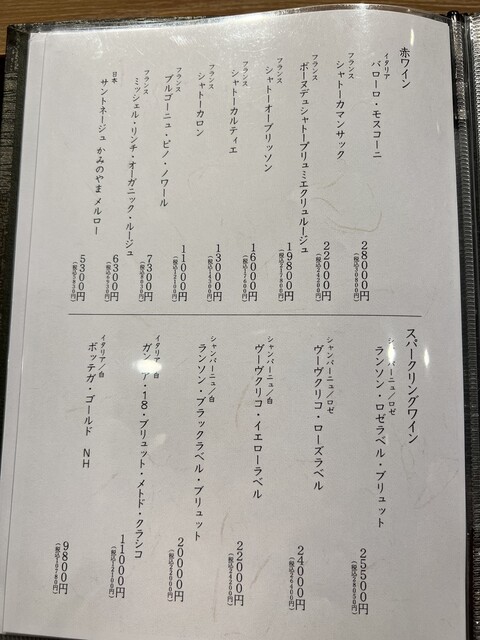 赤ワイン
イタリア
バローロ・モスコーニ
28000円
(税込30800円)
フランス
シャトーカマンサック
22000円
(税込24200円)
フランス
ボーヌデュシャトープリュミエクリュルージュ
19800円
フランス
シャトーオーブリッソン
16000円
(税込17600円)
フランス
シャトーカルティエ
13000円
(税込14300円)
フランス
シャトーカロン
11000円
(税込12100円)
フランス
ブルゴーニュ・ピノ・ノワール
7300円
(税込8030円)
フランス
ミッシェル・リンチ・オーガニック・ルージュ
6300円
(税込6930円)
日本
サントネージュ かみのやま メルロー
5300円
(税込5830円)
スパークリングワイン
シャンパーニュ/ロゼ
ランソン・ロゼラベル・ブリュット
25500円
(税込28050円)
シャンパーニュ/ロゼ
ヴーヴクリコ・ローズラベル
24000円
(税込26400円)
シャンパーニュ/白
ヴーヴクリコ・イエローラベル
22000円
(税込24200円)
シャンパーニュ/白
ランソン・ブラックラベル・ブリュット
20000円
(税込22000円)
イタリア/白
ガンチア・18・ブリュット・メトド・クラシコ
11000円
(税込12100円)
イタリア/白
ボッテガ・ゴールド NH
9800円
(税込10780円)